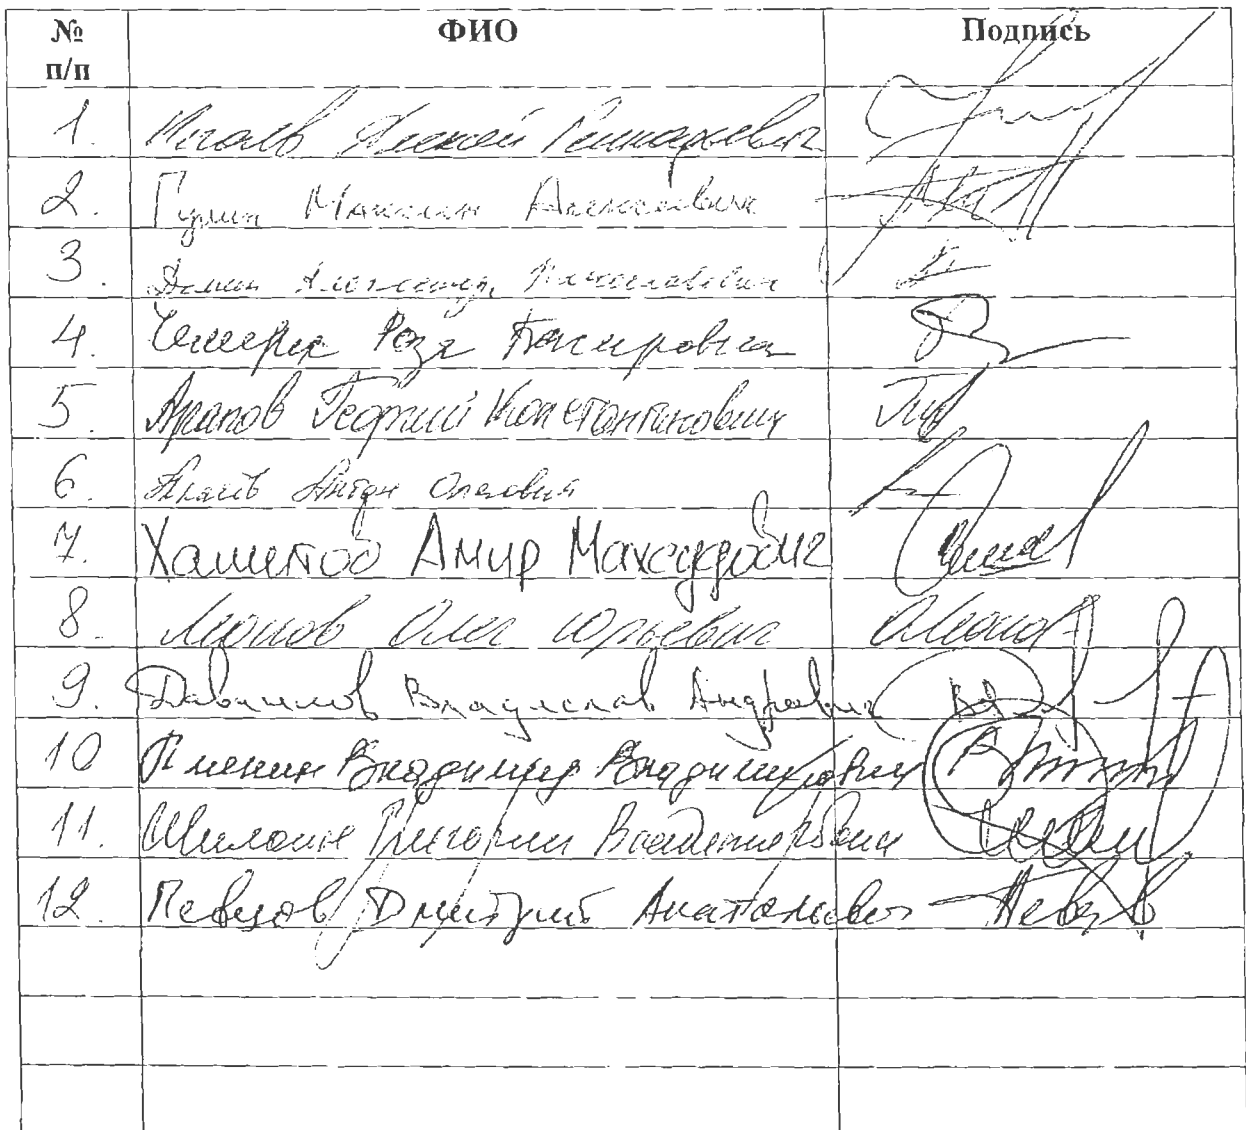 № п/п ФИО Подпись
1. Алексей Геннадьевич
2. Гулин Максим Алексеевич
3. Демин Александр Вячеславович
4. Роза Басировна
5. Арапов Георгий Константинович
6. Антон Олегович
7. Хамитов Амир Махсудович
8. Леонов Олег Юрьевич
9. Давыдов Владислав Андреевич
10 Пименин Владимир Владимирович
11. Шилоин Григорий Владимирович
12. Певцов Дмитрий Анатольевич